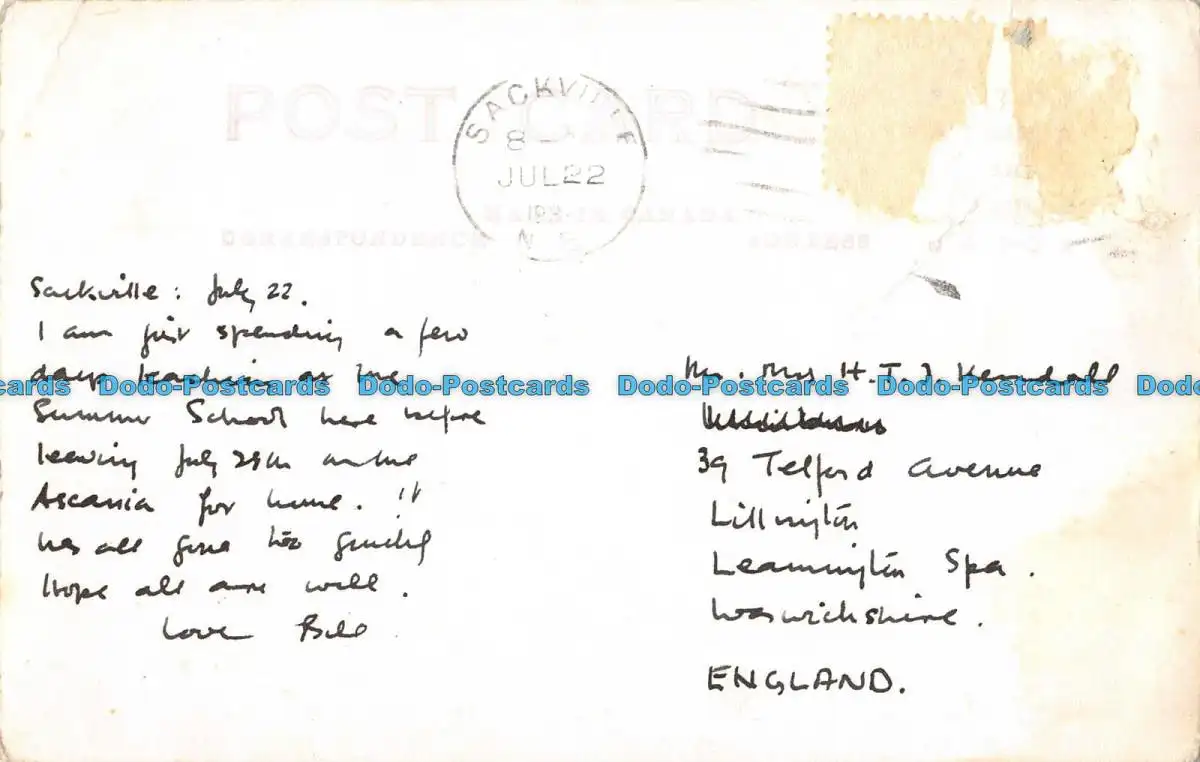 POST CARD
SACKVILLE
8
JUL 22
N B
MADE IN CANADA
CORRESPONDENCE
ADDRESS
Sackville: July 22.
I am just spending a few
days teaching at the
Summer School here before
leaving July 29th on the
Ascania for home. It
has all gone too quickly
Hope all are well.
Love Bill
Mr. Mrs H. T. J Kendall
39 Telford Avenue
Lillington
Leamington Spa.
Warwickshire.
ENGLAND.
Dodo-Postcards Dodo-Postcards Dodo-Postcards Dodo-Postcards